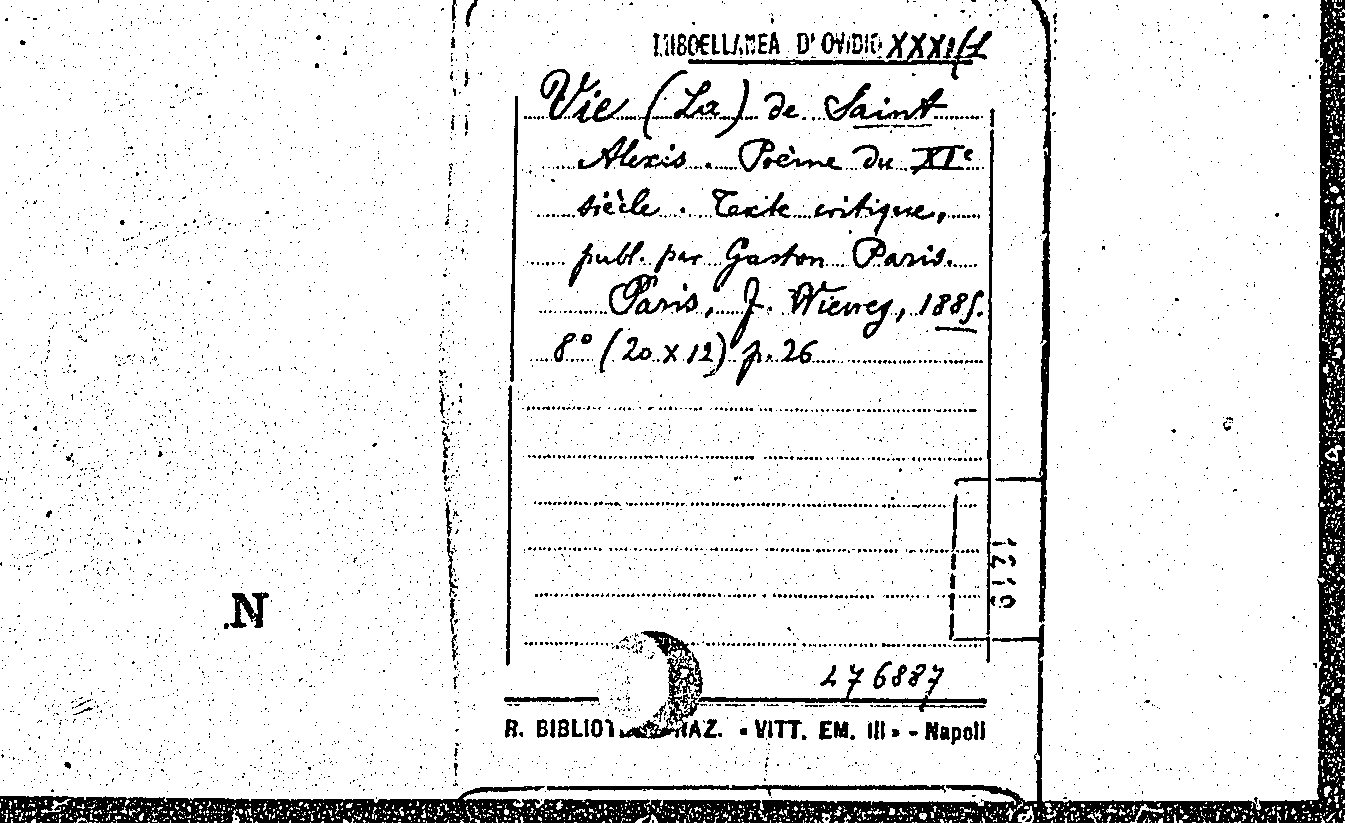 MISCELLANEA D'OVIDIO XXXI/1
Vie (La) de Saint
Alexis. Poème du XIe
siècle. Texte critique,
publ. par Gaston Paris.
Paris, F. Vieweg, 1885.
8° (20 x 12) p. 26
1216
N
276887
R. NAZ. « VITT. EM. III » - Napoli